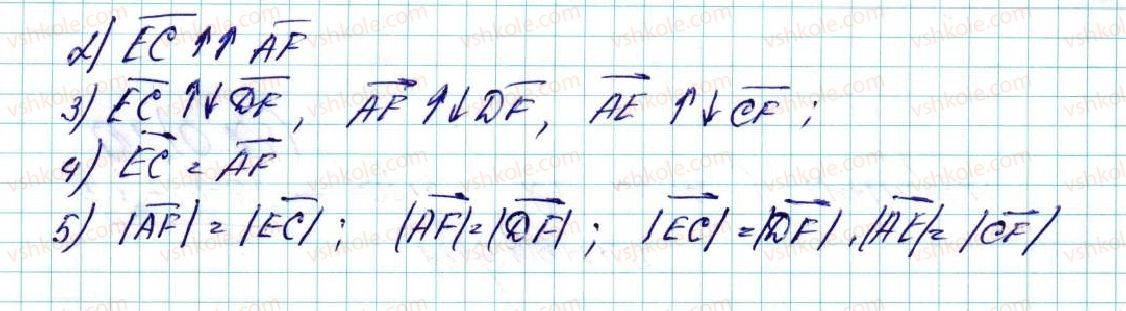 2) EC⃗ ↑↑ AF⃗
3) EC⃗ ↑↓ DF⃗, AF⃗ ↑↓ DF⃗, AE⃗ ↑↓ CF⃗;
4) EC⃗ = AF⃗
5) |AF⃗| = |EC⃗|; |AF⃗| = |DF⃗|; |EC⃗| = |DF⃗|, |AE⃗| = |CF⃗|
vshkole.com